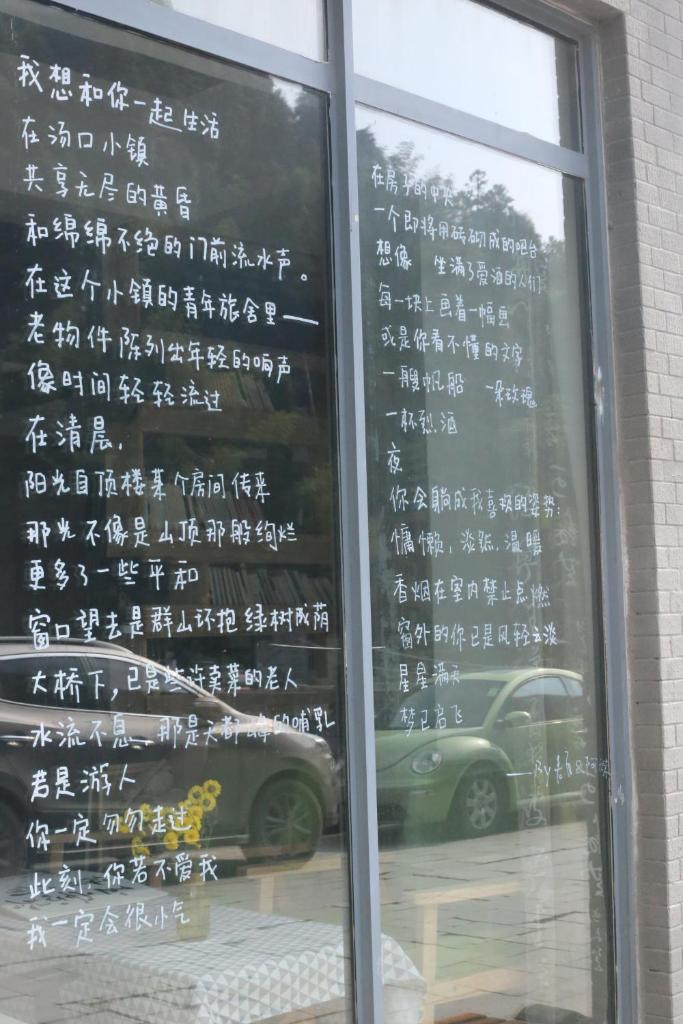 我想和你一起生活
在汤口小镇
共享无尽的黄昏
和绵绵不绝的门前流水声。
在这个小镇的青年旅舍里——
老物件陈列出年轻的响声
像时间轻轻流过
在清晨,
阳光自顶楼某个房间传来
那光不像是山顶那般绚烂
更多了一些平和
窗口望去是群山环抱绿树成荫
大桥下,已是些许卖菜的老人
水流不息,那是天都峰的哺乳
若是游人
你一定匆匆走过
此刻,你若不爱我
我一定会很小气
在房子的中央
一个即将用砖砌成的吧台
想像 坐满了爱酒的人们
每一块上画着一幅画
或是你看不懂的文字
一艘帆船 一朵玫瑰
一杯烈酒
夜
你会躺成我喜欢的姿势:
慵懒,淡然,温暖
香烟在室内禁止点燃
窗外的你已是风轻云淡
星星满天
梦已启飞